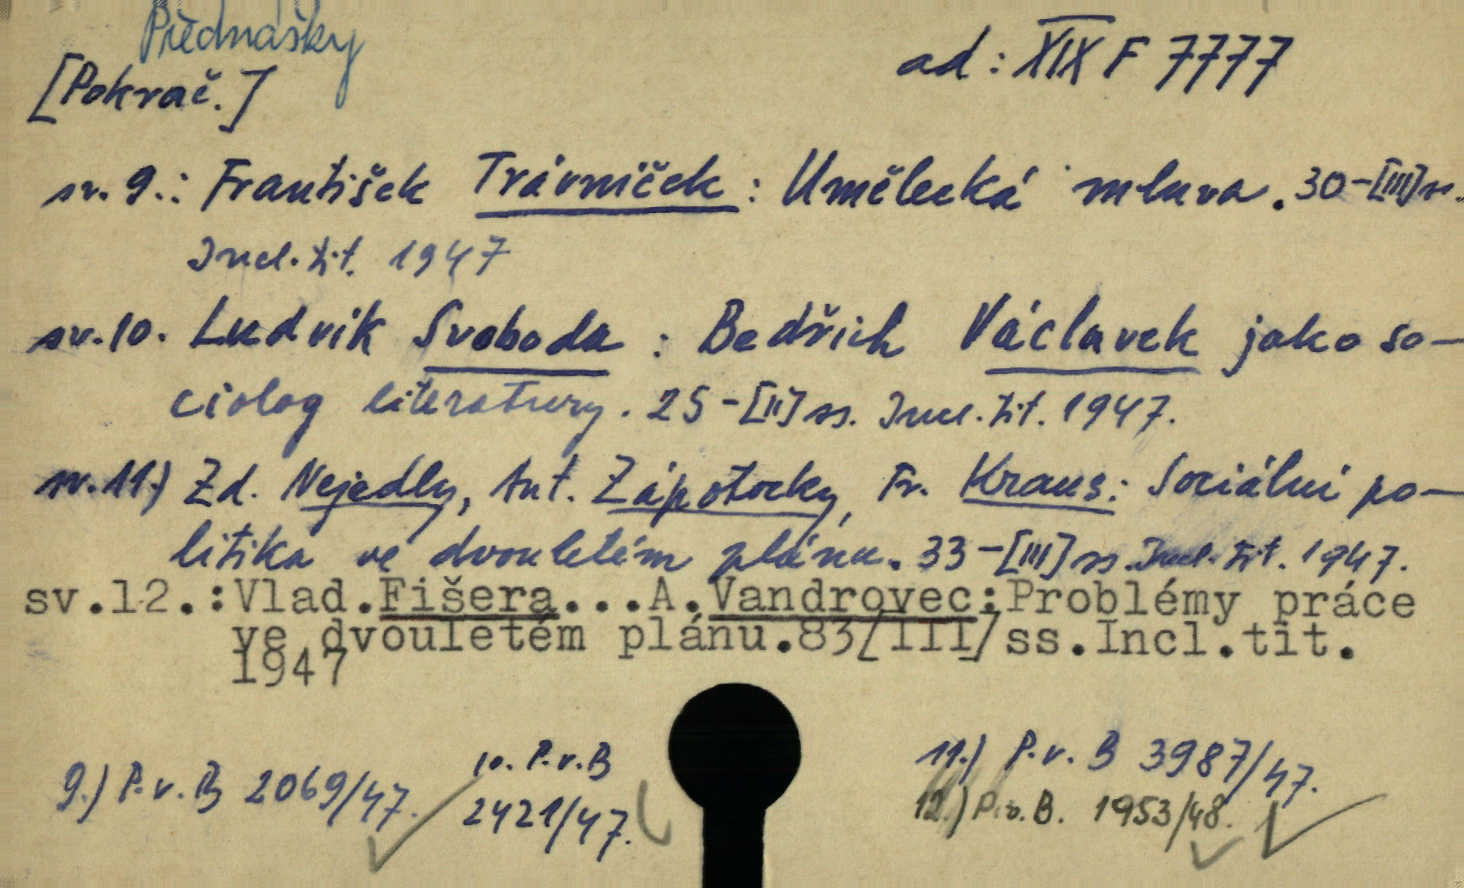 Přednášky
[Pokrač.]
ad: XIX F 7777
sv. 9.: František Trávníček: Umělecká mluva. 30-[III] ss.
Incl. tit. 1947
sv. 10. Ludvík Svoboda: Bedřich Václavek jako so-
ciolog literatury. 25-[II] ss. Incl. tit. 1947.
sv. 11.) Zd. Nejedlý, Ant. Zápotocký, Fr. Kraus: Sociální po-
litika ve dvouletém plánu. 33-[III] ss. Incl. tit. 1947.
sv.12.:Vlad.Fišera...A.Vandrovec:Problémy práce
ve dvouletém plánu.83/III/ss.Incl.tit.
1947
9.) P.v.B 2069/47.
10. P.v.B
2421/47.
11.) P.v.B 3987/47.
12.) P.v.B. 1953/48.